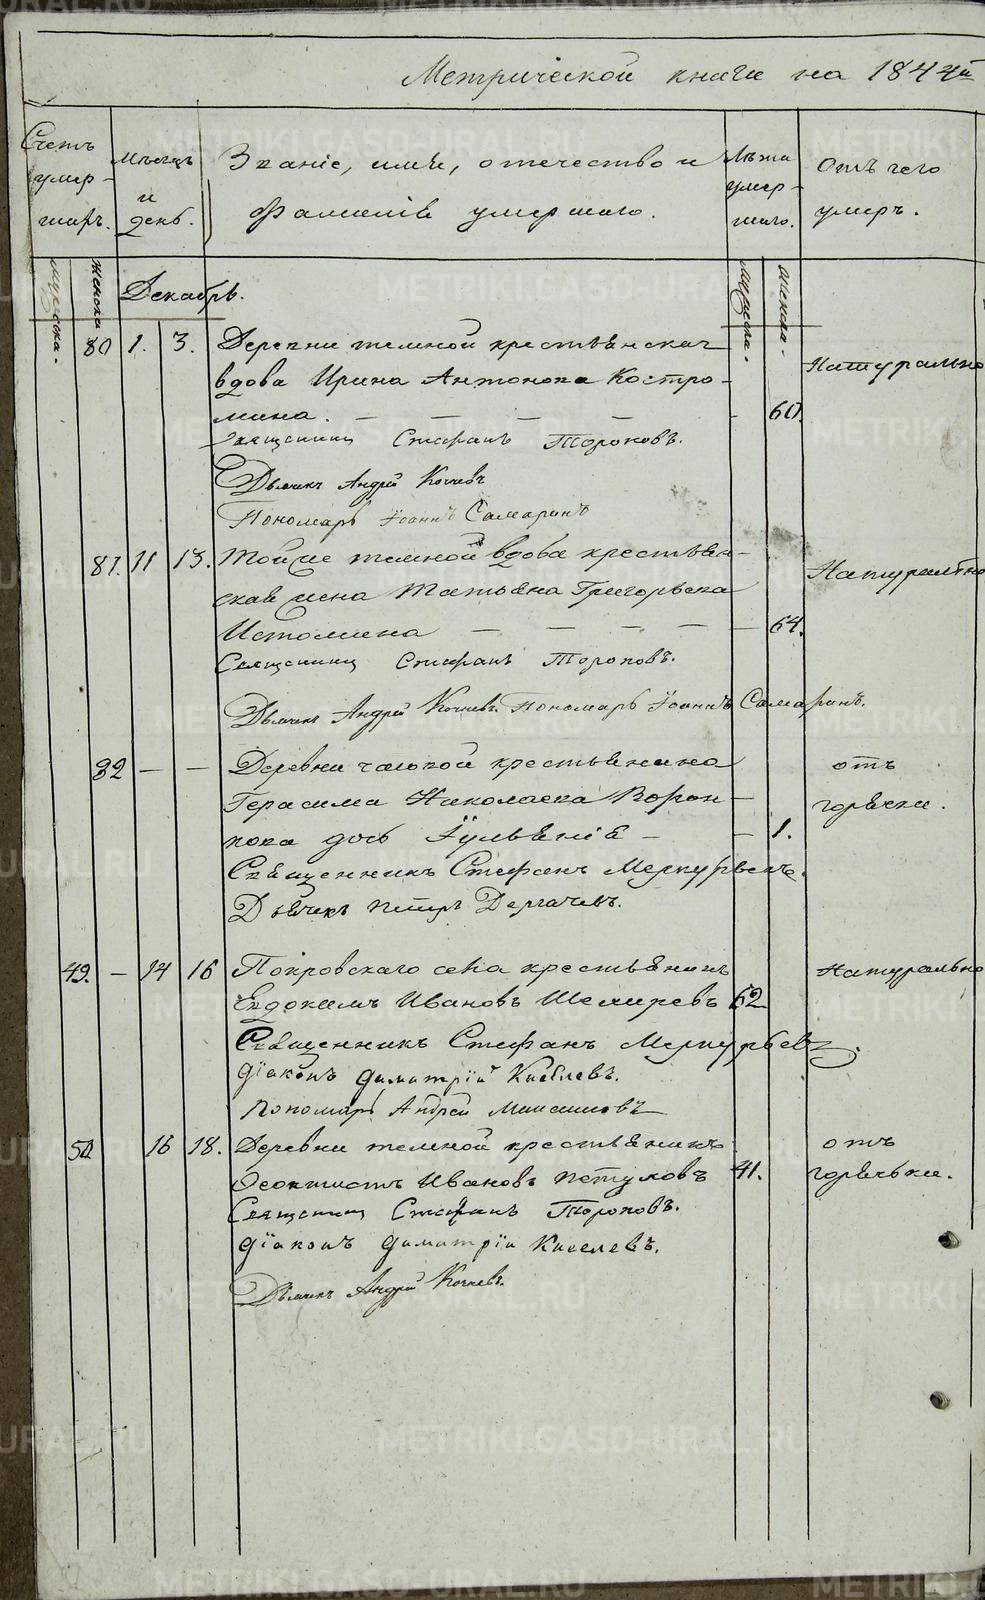 Метрической книги на 1844й
Счетъ умер- шихъ.
Мѣсяцъ и день.
Званіе, имя, отечество и
фамилія умершаго.
Лѣта умер- шаго.
Отъ чего умеръ.
мужска.
женска
Декабрь.
мужска.
женска.
80 1. 3. Деревни темной крестьянская Натурально
вдова Ирина Антонова Костро-
мина. 60.
Священникъ Стефанъ Тороповъ.
Дьячекъ Андрей
Пономарь Іоаннъ Самаринъ
81. 11 13. Той же темной вдова крестьян- Натурально
ская жена Татьяна Григорьева
Истомина 64.
Священникъ Стефанъ Тороповъ.
Дьячекъ Андрей Пономарь Іоаннъ Самаринъ.
82 — — Деревни крестьянина отъ
Герасима Николаева Ворон- горячки.
нова дочь Іульянія — 1.
Священникъ Стефанъ Меркурьевъ.
Дьячекъ Петръ Дергачевъ.
49. — 14 16 Покровскаго села крестьянинъ Натурально
Евдокимъ Ивановъ 62
Священникъ Стефанъ Меркурьевъ.
Діаконъ Димитрій Киселевъ.
Пономарь Андрей
50 16 18. Деревни темной крестьянинъ отъ
Феоктистъ Ивановъ Петуховъ 41. горячьки.
Священникъ Стефанъ Тороповъ.
Діаконъ Димитрій Киселевъ.
Дьячекъ Андрей
METRIKI.GASO-URAL.RU